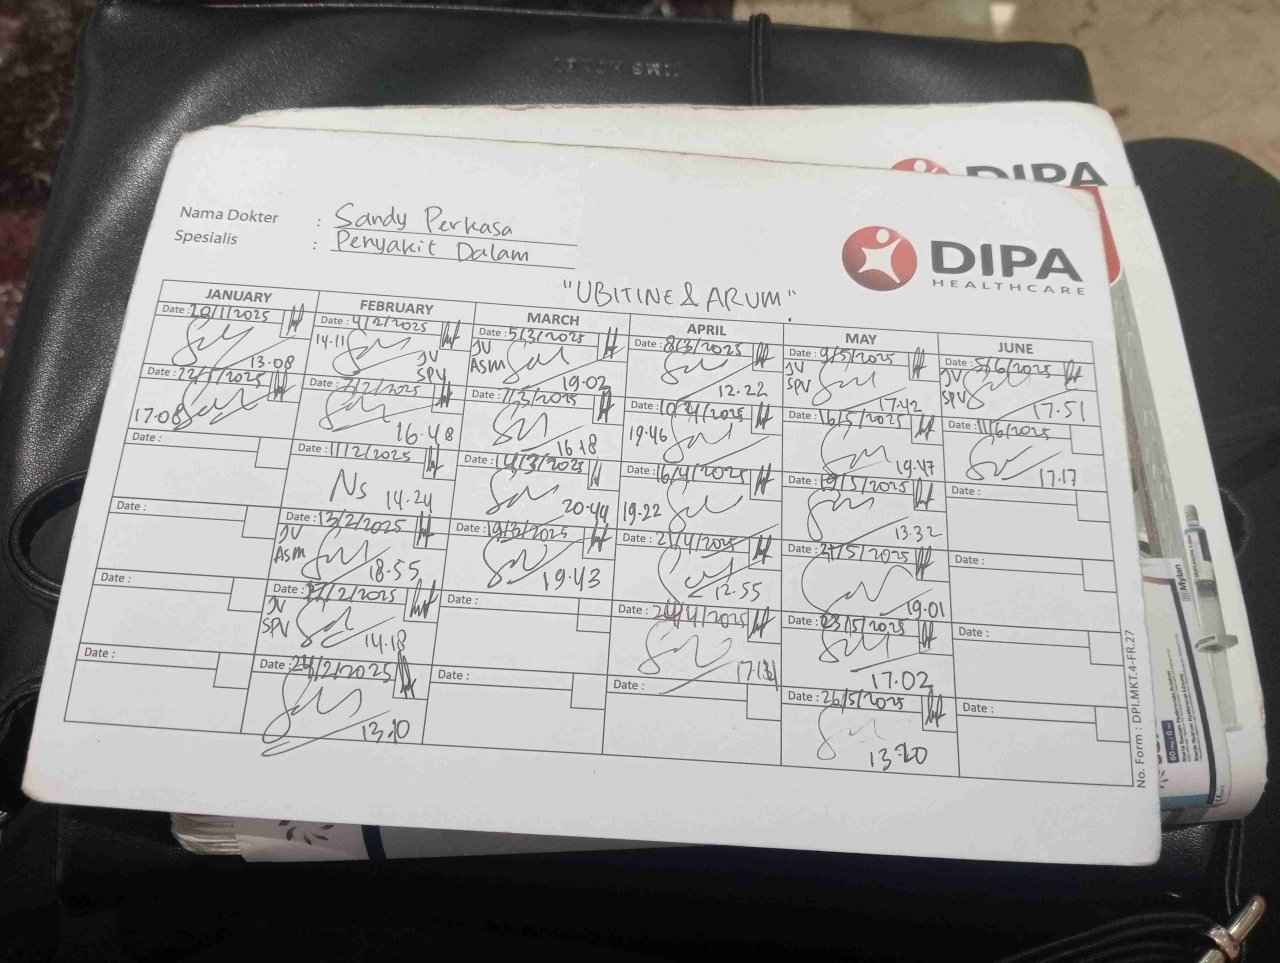 DIPA
Nama Dokter : Sandy Perkasa
Spesialis : Penyakit Dalam
DIPA
HEALTHCARE
"UBITINE & ARUM".
JANUARY FEBRUARY MARCH APRIL MAY JUNE
Date : 20/1/2025 13.08
Date : 22/1/2025 17.08
Date :
Date :
Date :
Date :
Date : 4/2/2025 14.11 JV SPV
Date : 7/2/2025 16.48
Date : 11/2/2025 Ns 14.24
Date : 13/2/2025 JV ASM 18.55
Date : 17/2/2025 JV SPV 14.18
Date : 24/2/2025
Date : 5/3/2025 JV ASM 19.02
Date : 7/3/2025 16.18
Date : 14/3/2025 20.44
Date : 19/3/2025 19.43
Date :
Date :
Date : 8/3/2025 12.22
Date : 2025 19.46
Date : 16/4/2025 19.22
Date : 21/4/2025 12.55
Date : 24/4/2025
Date :
Date : 9/5/2025 JV SPV 17.42
Date : 16/5/2025 19.47
Date : 19/5/2025 13.32
Date : 21/5/2025 19.01
Date : 23/5/2025 17.02
Date : 26/5/2025
Date : 5/6/2025 JV SPV 17.51
Date : 11/6/2025 17.17
Date :
Date :
Date :
Date :
No. Form : DPI.MKT.4-FR.27
Mylan